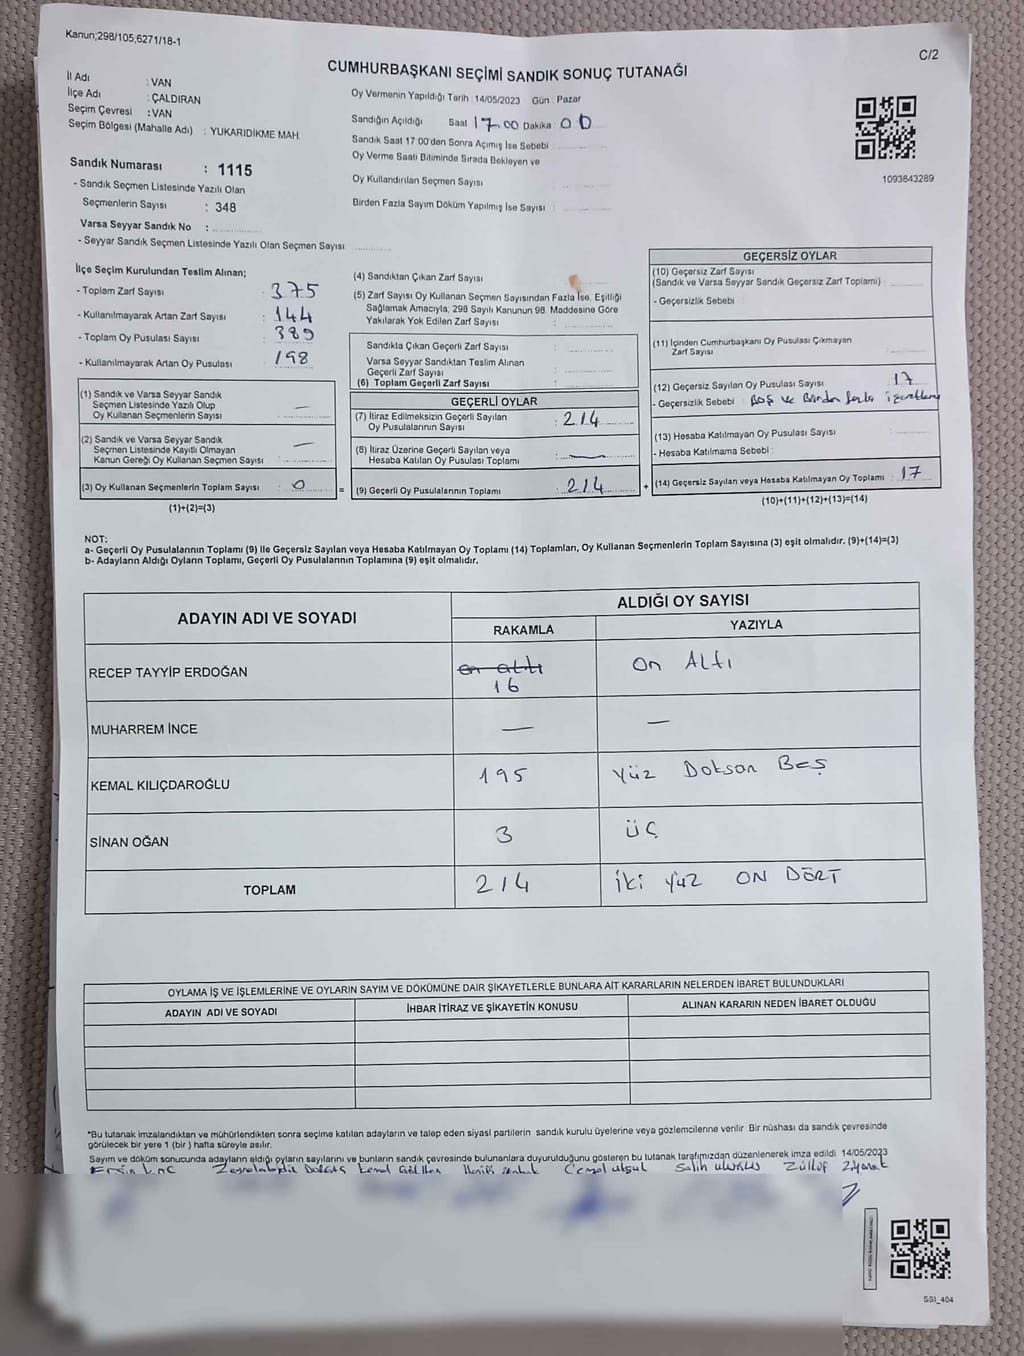 Kanun;298/105,6271/18-1
C/2
CUMHURBAŞKANI SEÇİMİ SANDIK SONUÇ TUTANAĞI
İl Adı : VAN
İlçe Adı : ÇALDIRAN
Seçim Çevresi : VAN
Seçim Bölgesi (Mahalle Adı) : YUKARIDİKME MAH.
Sandık Numarası : 1115
- Sandık Seçmen Listesinde Yazılı Olan
Seçmenlerin Sayısı : 348
Varsa Seyyar Sandık No :
- Seyyar Sandık Seçmen Listesinde Yazılı Olan Seçmen Sayısı:
Oy Vermenin Yapıldığı Tarih : 14/05/2023 Gün : Pazar
Sandığın Açıldığı Saat 17.00 Dakika : 00
Sandık Saat 17:00'den Sonra Açımış İse Sebebi :
Oy Verme Saati Bitiminde Sırada Bekleyen ve
Oy Kullandırılan Seçmen Sayısı
Birden Fazla Sayım Döküm Yapılmış İse Sayısı :
1093843289
İlçe Seçim Kurulundan Teslim Alınan;
- Toplam Zarf Sayısı : 375
- Kullanılmayarak Artan Zarf Sayısı : 144
- Toplam Oy Pusulası Sayısı : 389
- Kullanılmayarak Artan Oy Pusulası : 198
(1) Sandık ve Varsa Seyyar Sandık
Seçmen Listesinde Yazılı Olup
Oy Kullanan Seçmenlerin Sayısı : —
(2) Sandık ve Varsa Seyyar Sandık
Seçmen Listesinde Kayıtlı Olmayan
Kanun Gereği Oy Kullanan Seçmen Sayısı : —
(3) Oy Kullanan Seçmenlerin Toplam Sayısı : 0 =
(1)+(2)=(3)
(4) Sandıktan Çıkan Zarf Sayısı
(5) Zarf Sayısı Oy Kullanan Seçmen Sayısından Fazla İse, Eşitliği
Sağlamak Amacıyla, 298 Sayılı Kanunun 98. Maddesine Göre
Yakılarak Yok Edilen Zarf Sayısı :
Sandıkta Çıkan Geçerli Zarf Sayısı :
Varsa Seyyar Sandıktan Teslim Alınan
Geçerli Zarf Sayısı :
(6) Toplam Geçerli Zarf Sayısı :
GEÇERLİ OYLAR
(7) İtiraz Edilmeksizin Geçerli Sayılan
Oy Pusulalarının Sayısı : 214
(8) İtiraz Üzerine Geçerli Sayılan veya
Hesaba Katılan Oy Pusulası Toplamı : —
(9) Geçerli Oy Pusulalarının Toplamı : 214 +
GEÇERSİZ OYLAR
(10) Geçersiz Zarf Sayısı
(Sandık ve Varsa Seyyar Sandık Geçersiz Zarf Toplamı) :
- Geçersizlik Sebebi :
(11) İçinden Cumhurbaşkanı Oy Pusulası Çıkmayan
Zarf Sayısı
(12) Geçersiz Sayılan Oy Pusulası Sayısı : 17
- Geçersizlik Sebebi : Boş ve Birden fazla
(13) Hesaba Katılmayan Oy Pusulası Sayısı :
- Hesaba Katılmama Sebebi :
(14) Geçersiz Sayılan veya Hesaba Katılmayan Oy Toplamı : 17
(10)+(11)+(12)+(13)=(14)
NOT:
a- Geçerli Oy Pusulalarının Toplamı (9) İle Geçersiz Sayılan veya Hesaba Katılmayan Oy Toplamı (14) Toplamları, Oy Kullanan Seçmenlerin Toplam Sayısına (3) eşit olmalıdır. (9)+(14)=(3)
b- Adayların Aldığı Oyların Toplamı, Geçerli Oy Pusulalarının Toplamına (9) eşit olmalıdır.
ADAYIN ADI VE SOYADI
ALDIĞI OY SAYISI
RAKAMLA YAZIYLA
RECEP TAYYİP ERDOĞAN on altı 16 On Altı
MUHARREM İNCE — —
KEMAL KILIÇDAROĞLU 195 Yüz Doksan Beş
SİNAN OĞAN 3 üç
TOPLAM 214 iki yüz ON DÖRT
OYLAMA İŞ VE İŞLEMLERİNE VE OYLARIN SAYIM VE DÖKÜMÜNE DAİR ŞİKAYETLERLE BUNLARA AİT KARARLARIN NELERDEN İBARET BULUNDUKLARI
ADAYIN ADI VE SOYADI İHBAR İTİRAZ VE ŞİKAYETİN KONUSU ALINAN KARARIN NEDEN İBARET OLDUĞU
*Bu tutanak imzalandıktan ve mühürlendikten sonra seçime katılan adayların ve talep eden siyasi partilerin sandık kurulu üyelerine veya gözlemcilerine verilir. Bir nüshası da sandık çevresinde
görülecek bir yere 1 (bir) hafta süreyle asılır.
Sayım ve döküm sonucunda adayların aldığı oyların sayılarını ve bunların sandık çevresinde bulunanlara duyurulduğunu gösteren bu tutanak tarafımızdan düzenlenerek imza edildi 14/05/2023
SSI_404